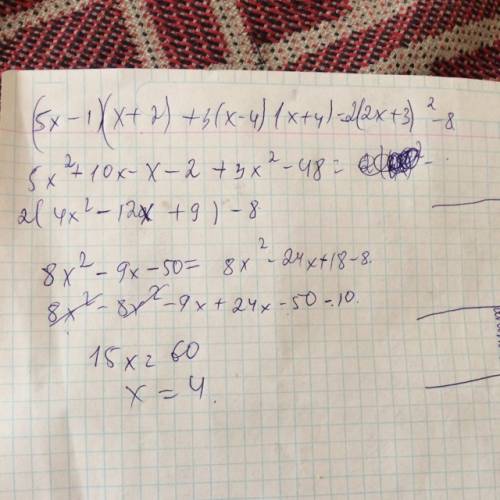 (5x-1)(x+2) +3(x-4)(x+4)=2(2x+3)²-8
5x²+10x-x-2+3x²-48=
2(4x²-12x+9)-8
8x²-9x-50=8x²-24x+18-8.
8x²-8x²-9x+24x-50-10.
15x=60
x=4.